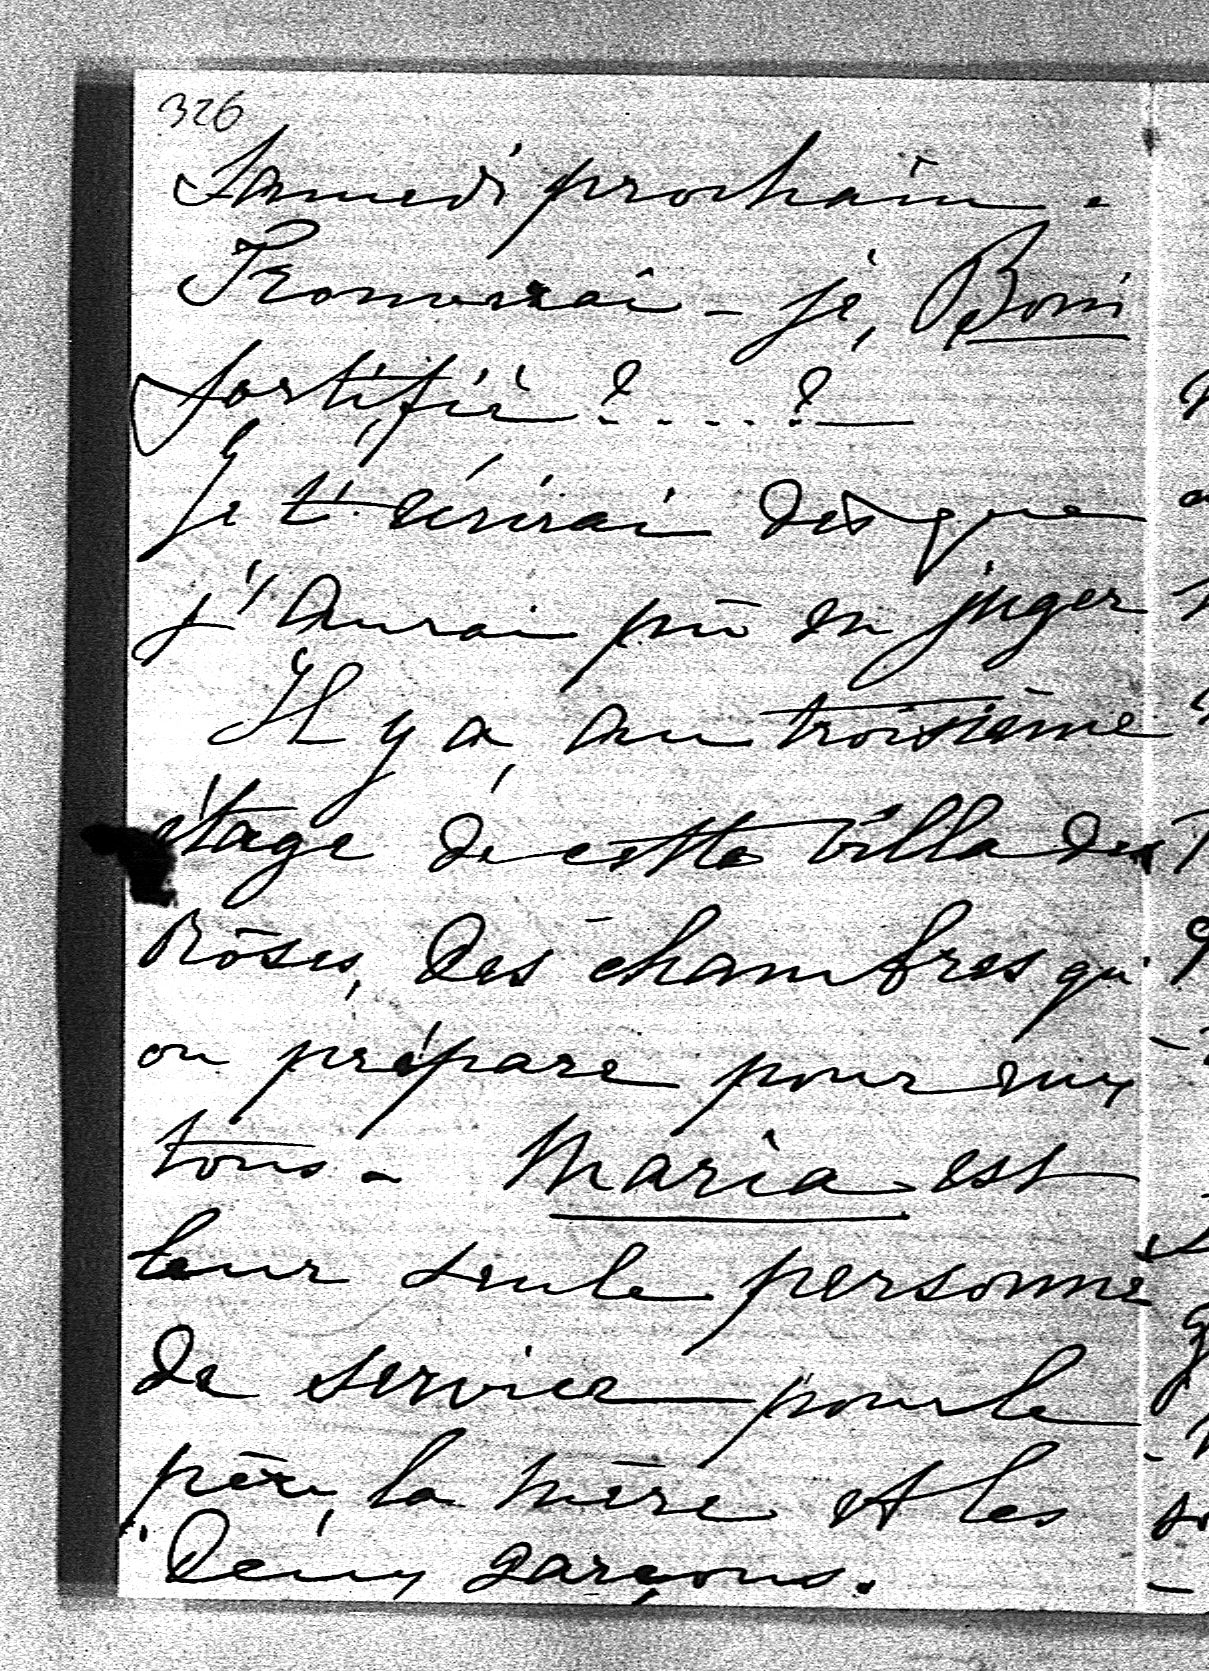 326
Samedi prochain.
Trouverai-je, Boni
fortifié ?....?—
Je t'écrirai dès que
j'aurai pû en juger
Il y a, au troisième
étage de cette villa des
Roses, des chambres qu'
on prépare pour eux
tous. Maria est
leur seule personne
de service pour le
père, la mère et les
deux garçons.